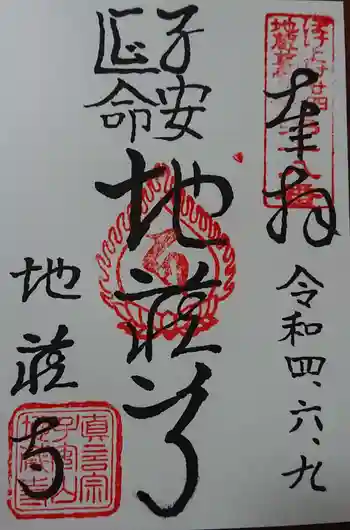 奉拝
令和四、六、九
子安
延命
地蔵尊
地蔵寺
真言宗
子安山
地蔵寺